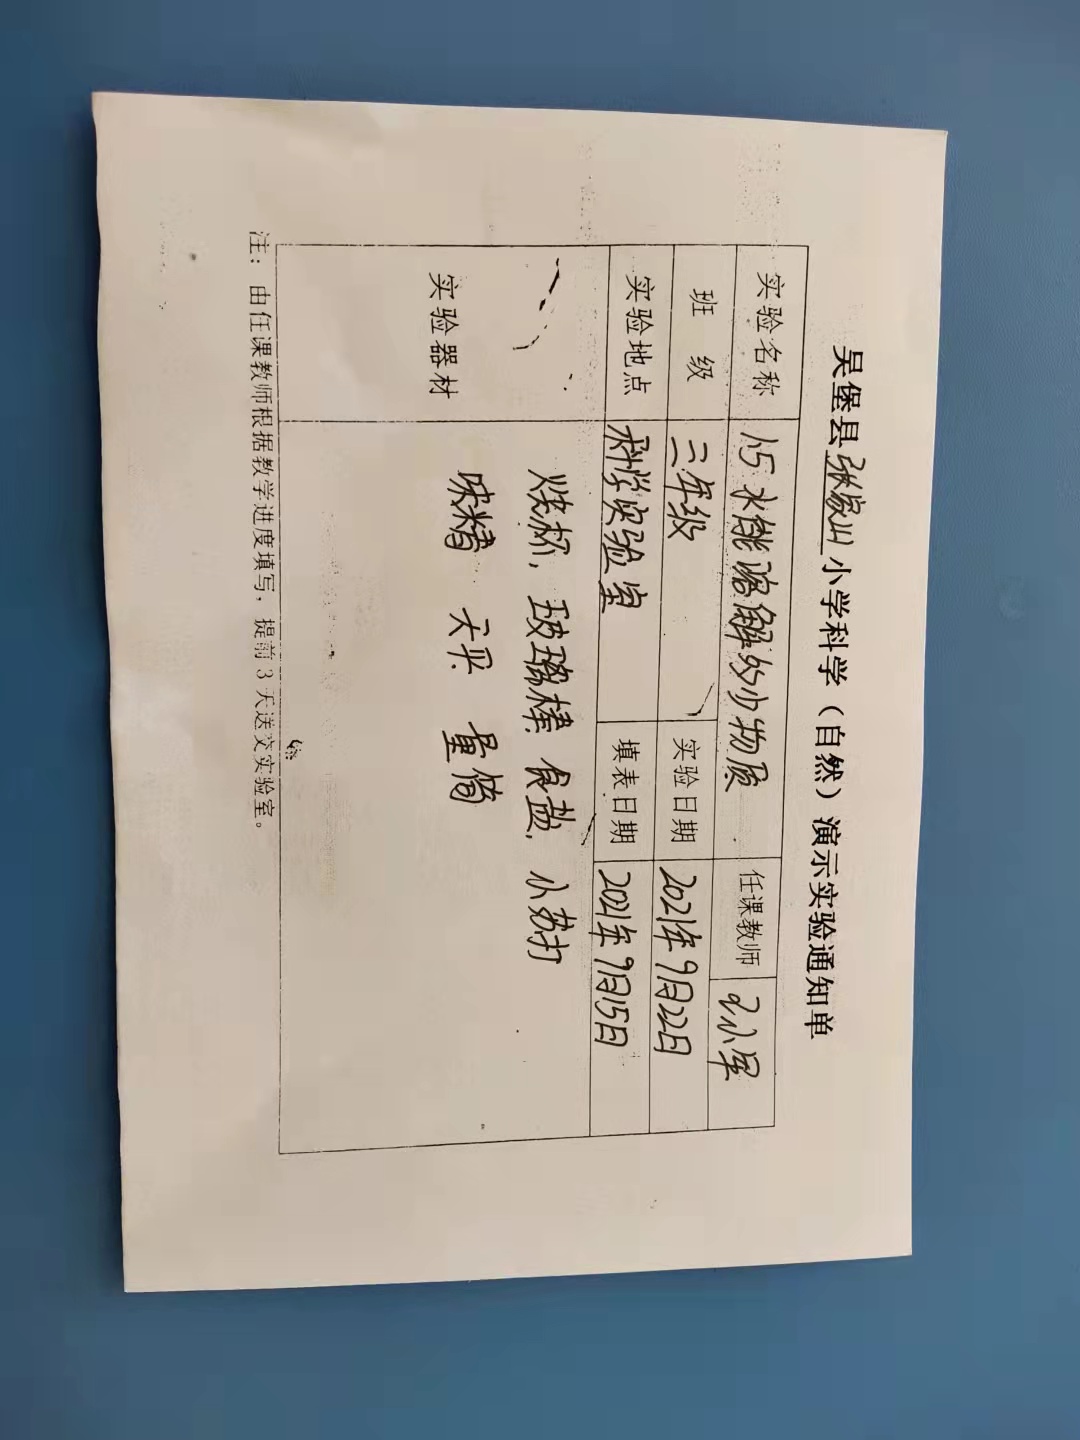 吴堡县张家山小学科学（自然）演示实验通知单
实验名称 1.5 水能溶解多少物质 任课教师 王小军
班 级 三年级 实验日期 2021年9月22日
实验地点 科学实验室 填表日期 2021年9月15日
实验器材 烧杯，玻璃棒，食盐，小苏打
味精 天平 量筒
注：由任课教师根据教学进度填写，提前3天送交实验室。